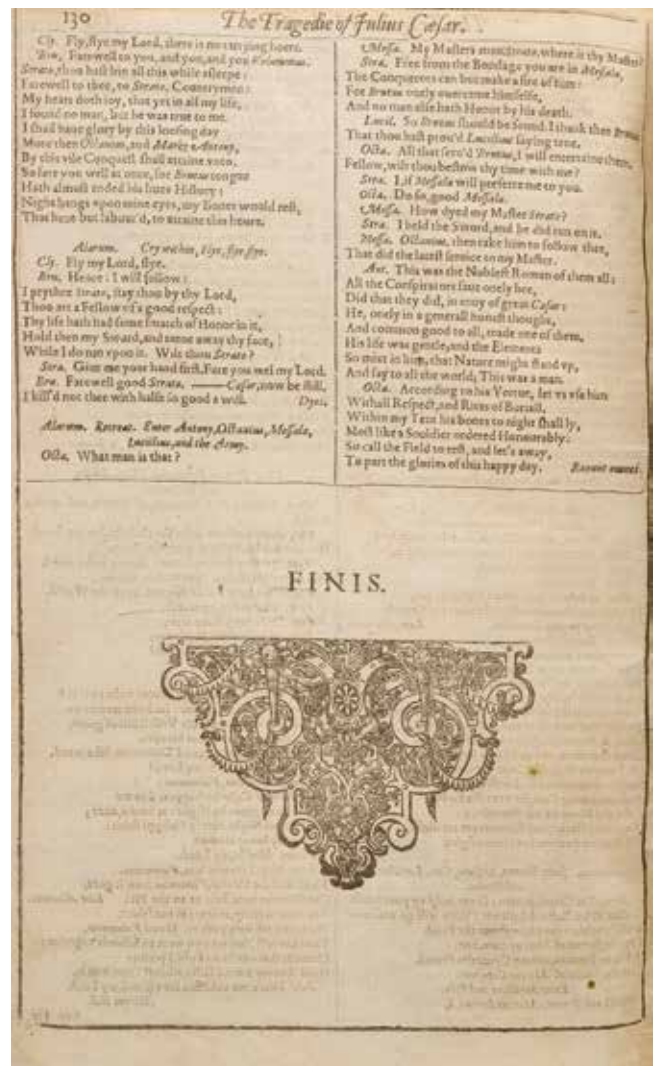 130
The Tragedie of Julius Cæsar.
Cly. Fly, flye my Lord, there is no tarrying heere.
Bru. Farewell to you, and you, and you Volumnius.
Strato, thou hast bin all this while asleepe:
Farewell to thee, to Strato, Countrymen:
My heart doth ioy, that yet in all my life,
I found no man, but he was true to me.
I shall haue glory by this loosing day
More then Octauius, and Marke Antony,
By this vile Conquest shall attaine vnto.
So fare you well at once, for Brutus tongue
Hath almost ended his liues History:
Night hangs vpon mine eyes, my Bones would rest,
That haue but labour'd, to attaine this houre.
Alarum. Cry within, Flye, flye, flye.
Cly. Fly my Lord, flye.
Bru. Hence: I will follow:
I prythee Strato, stay thou by thy Lord,
Thou art a Fellow of a good respect:
Thy life hath had some smatch of Honor in it,
Hold then my Sword, and turne away thy face,
While I do run vpon it. Wilt thou Strato?
Stra. Giue me your hand first. Fare you wel my Lord.
Bru. Farewell good Strato. ——Cæsar, now be still,
I kill'd not thee with halfe so good a will. Dyes.
Alarum. Retreat. Enter Antony, Octauius, Messala,
Lucillius, and the Army.
Octa. What man is that?
Messa. My Masters man. Strato, where is thy Master?
Stra. Free from the Bondage you are in Messala,
The Conquerors can but make a fire of him:
For Brutus onely ouercame himselfe,
And no man else hath Honor by his death.
Lucil. So Brutus should be found. I thank thee Brutus
That thou hast prou'd Lucillius saying true.
Octa. All that seru'd Brutus, I will entertaine them.
Fellow, wilt thou bestow thy time with me?
Stra. I, if Messala will preferre me to you.
Octa. Do so, good Messala.
Messa. How dyed my Master Strato?
Stra. I held the Sword, and he did run on it.
Messa. Octauius, then take him to follow thee,
That did the latest seruice to my Master.
Ant. This was the Noblest Roman of them all:
All the Conspirators saue onely hee,
Did that they did, in enuy of great Cæsar:
He, onely in a generall honest thought,
And common good to all, made one of them.
His life was gentle, and the Elements
So mixt in him, that Nature might stand vp,
And say to all the world; This was a man.
Octa. According to his Vertue, let vs vse him
Withall Respect, and Rites of Buriall.
Within my Tent his bones to night shall ly,
Most like a Souldier ordered Honourably:
So call the Field to rest, and let's away,
To part the glories of this happy day. Exeunt omnes.
FINIS.